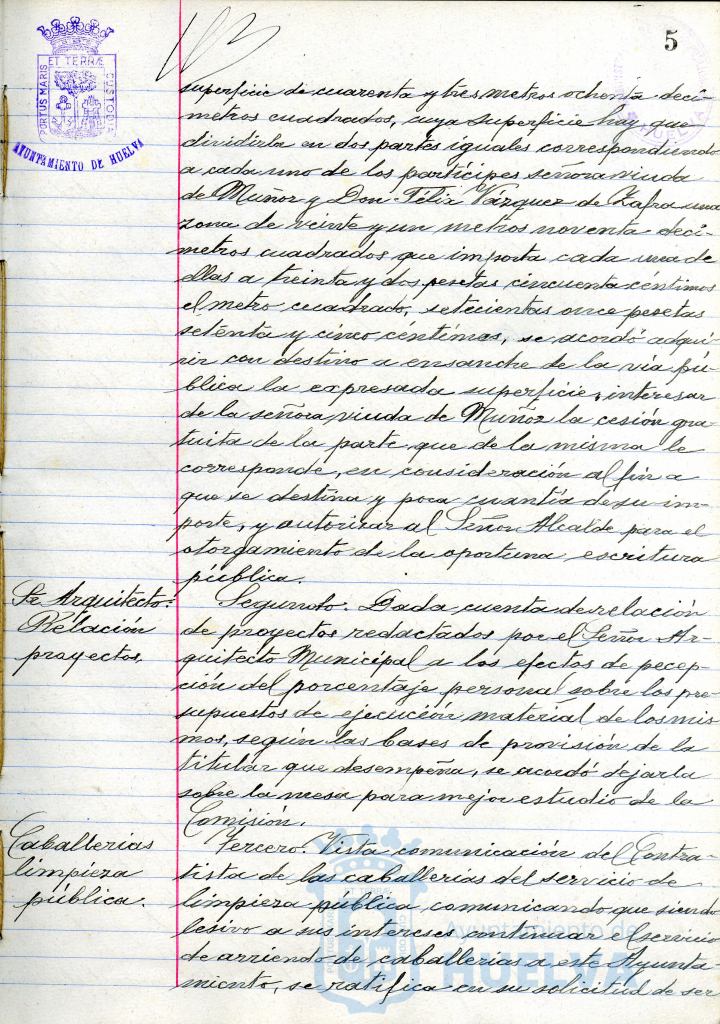 5
PORTUS MARIS
ET TERRÆ
CUSTODIA
AYUNTAMIENTO DE HUELVA
superficie de cuarenta y tres metros ochenta decí-
metros cuadrados, cuya superficie hay que
dividirla en dos partes iguales correspondiendo
a cada uno de los partícipes señora viuda
de Muñoz y Don Félix Vázquez de Zafra una
zona de veinte y un metros noventa decí-
metros cuadrados que importa cada una de
ellas a treinta y dos pesetas cincuenta céntimos
el metro cuadrado, setecientas once pesetas
setenta y cinco céntimos, se acordó adqui-
rir con destino a ensanche de la vía pú-
blica la expresada superficie, interesar
de la señora viuda de Muñoz la cesión gra-
tuita de la parte que de la misma le
corresponde, en consideración al fin a
que se destina y poca cuantía de su im-
porte, y autorizar al Señor Alcalde para el
otorgamiento de la oportuna escritura
pública.
Sr Arquitecto.
Relación
proyectos.
Segundo. Dada cuenta de relación
de proyectos redactados por el Señor Ar-
quitecto Municipal a los efectos de percep-
ción del porcentaje personal sobre los pre-
supuestos de ejecución material de los mis-
mos, según las bases de provisión de la
titular que desempeña, se acordó dejarla
sobre la mesa para mejor estudio de la
Comisión.
Caballerias
limpieza
pública.
Tercero. Vista comunicación del Contra-
tista de las caballerias del servicio de
limpieza pública, comunicando que siendo
lesivo a sus intereses continuar el servicio
de arriendo de caballerias a este Ayunta-
miento, se ratifica en su solicitud de ser
Ayuntamiento de
HUELVA